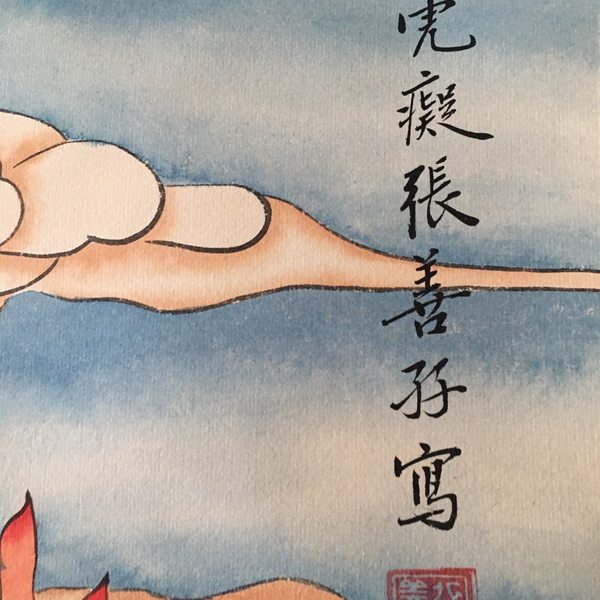 虎癡張善孖寫